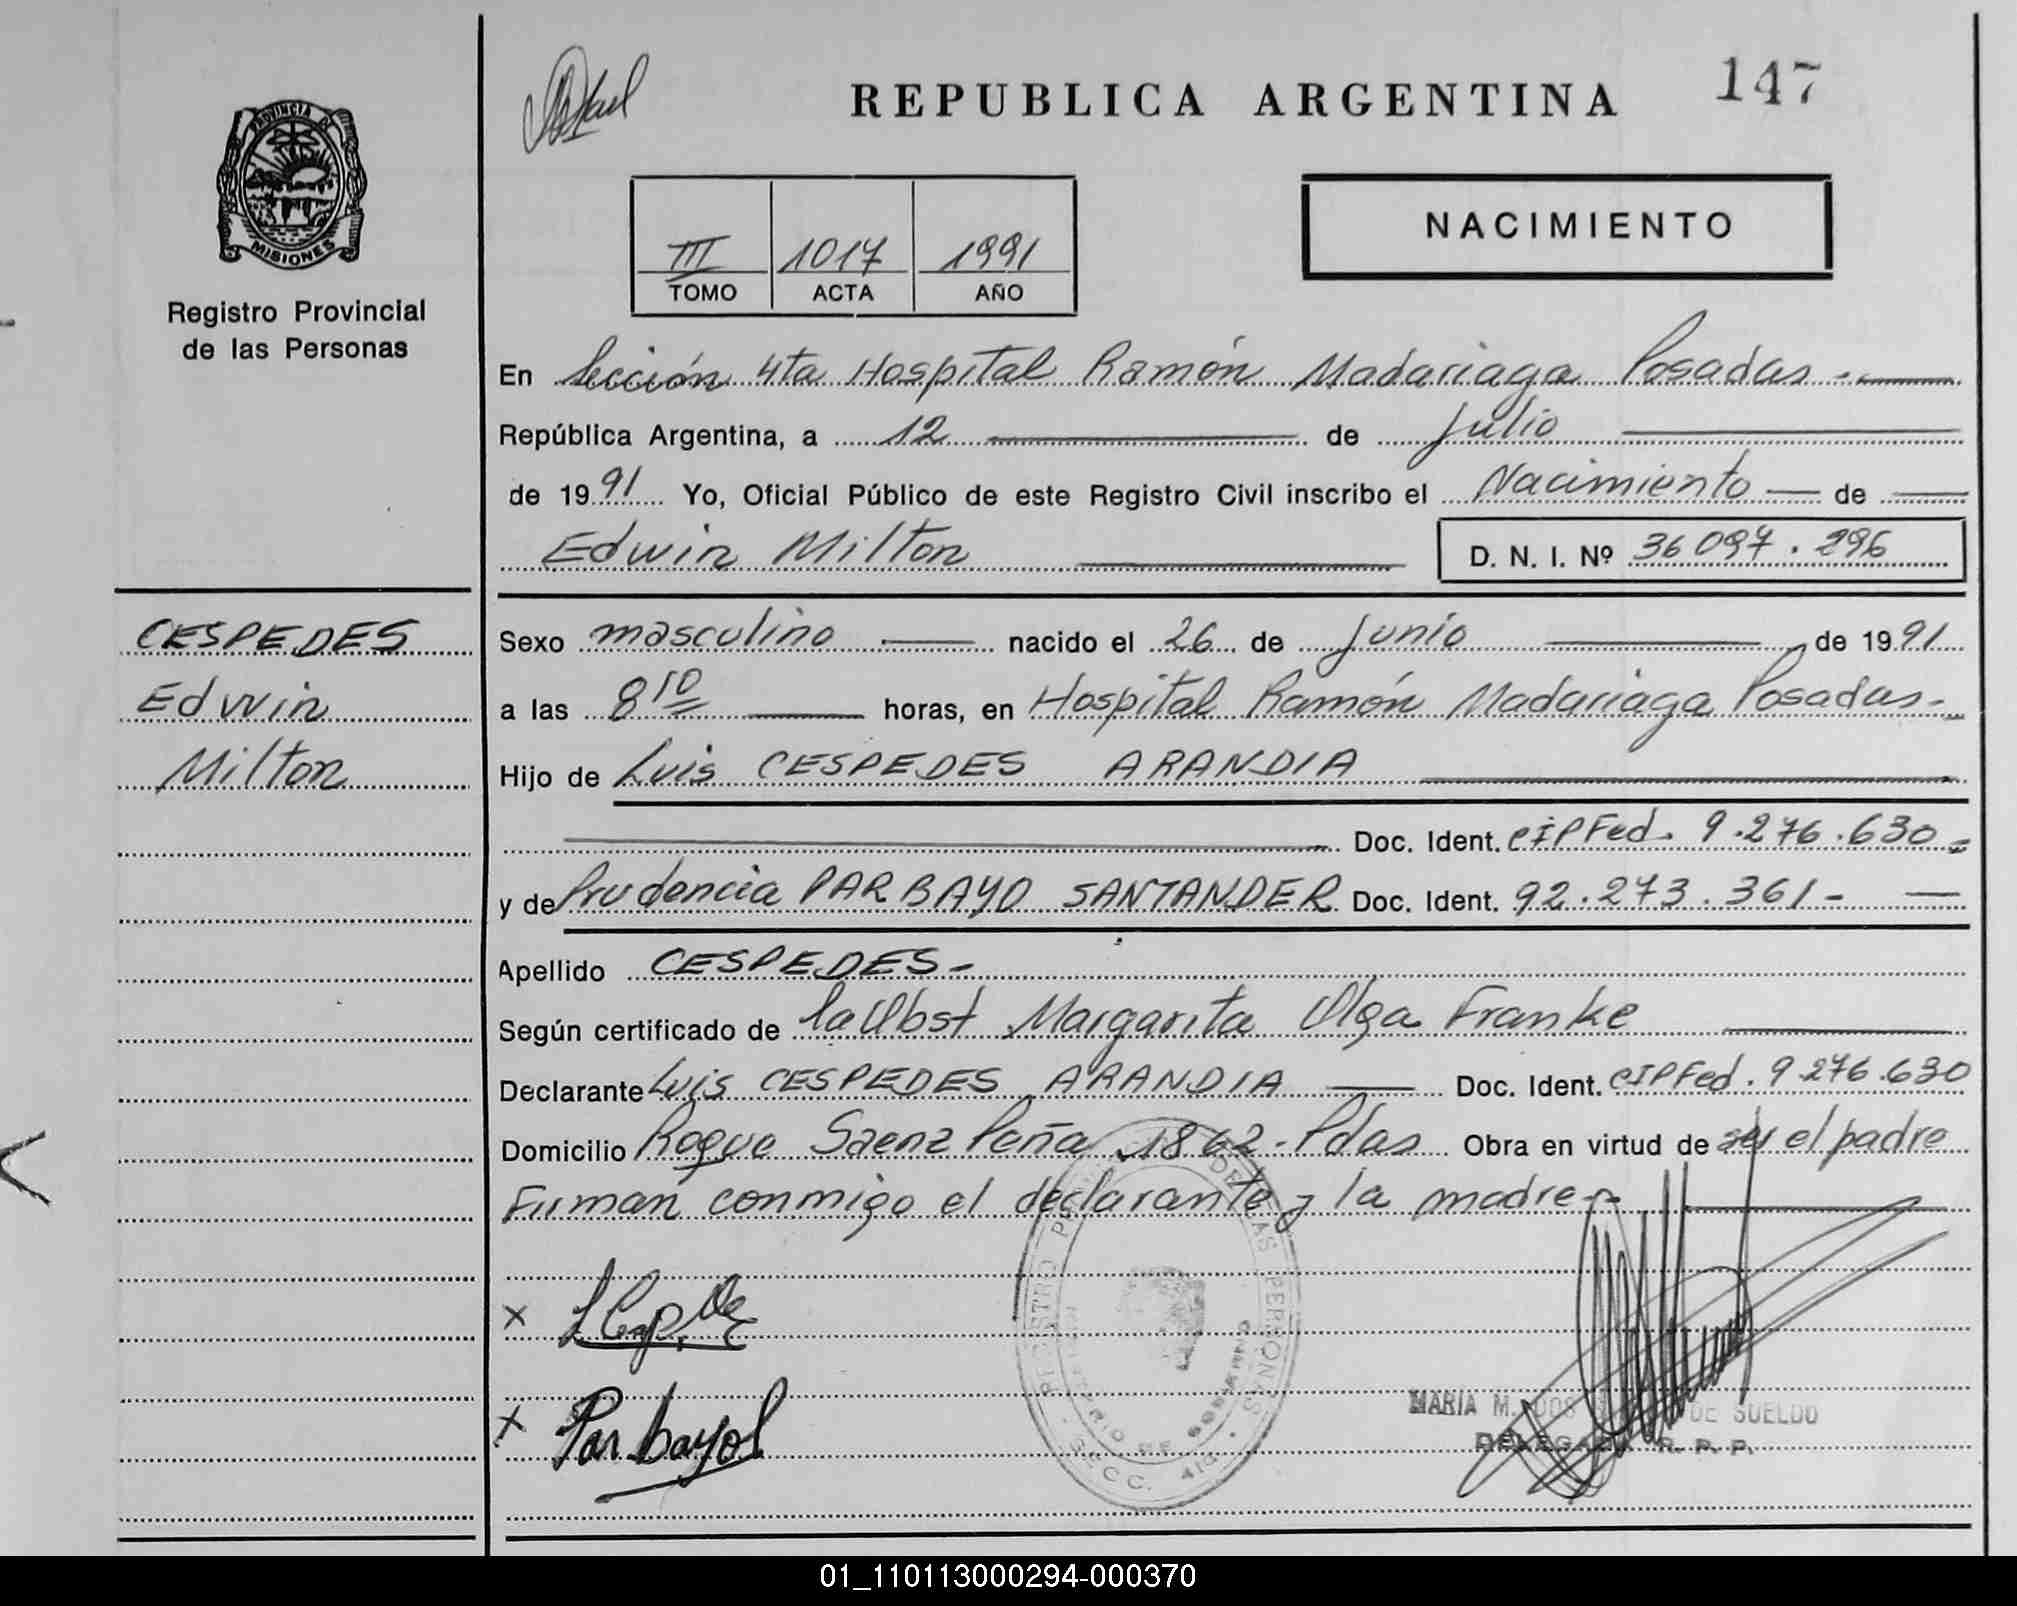 147
REPUBLICA ARGENTINA
PROVINCIA DE
MISIONES
Registro Provincial
de las Personas
III 1017 1991
TOMO ACTA AÑO
NACIMIENTO
En Sección 4ta Hospital Ramón Madariaga Posadas.-
República Argentina, a 12 de Julio
de 1991 Yo, Oficial Público de este Registro Civil inscribo el Nacimiento de
Edwin Milton D. N. I. Nº 36 097.296
CESPEDES
Edwin
Milton
Sexo masculino nacido el 26 de Junio de 1991
a las 8 10 horas, en Hospital Ramón Madariaga Posadas-
Hijo de Luis CESPEDES ARANDIA
Doc. Ident. CIPFed. 9.276.630-
y de Prudencia PARBAYO SANTANDER Doc. Ident. 92.273.361-
Apellido CESPEDES-
Según certificado de la Obst Margarita Olga Franke
Declarante Luis CESPEDES ARANDIA Doc. Ident. CIPFed. 9.276.630
Domicilio Roque Saenz Peña 1862-Pdas Obra en virtud de ser el padre
Firman conmigo el declarante y la madre-
x
x Parbayo
REGISTRO DE LAS PERSONAS
SECC. 4ta.
MARIA M. DOS DE SUELDO
DELEGADA R. P. P.
01_110113000294-000370